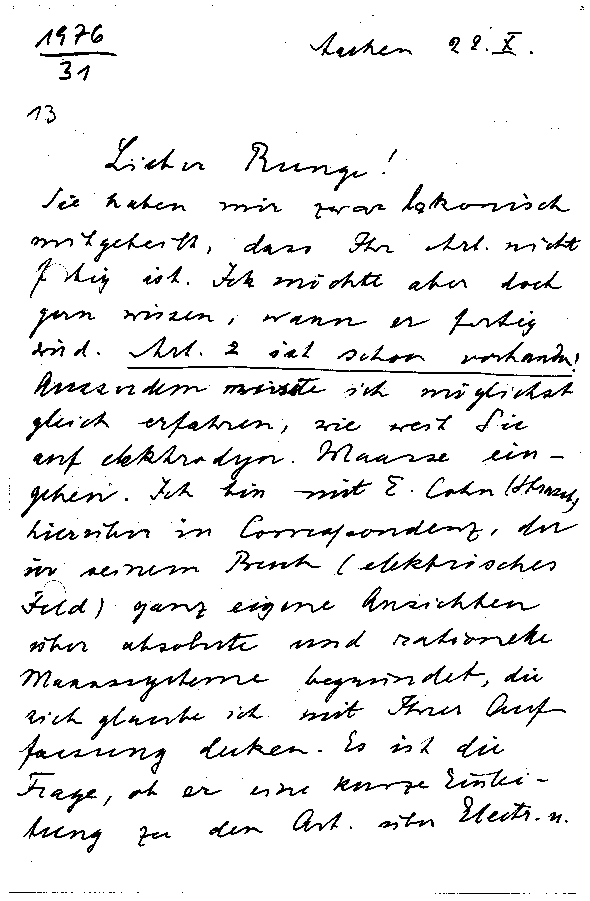 1976
31
13
Aachen 22. X.
Lieber Runge!
Sie haben mir zwar lakonisch
mitgetheilt, dass Ihr Art. nicht
fertig ist. Ich möchte aber doch
gern wissen, wann er fertig
wird. Art. 2 ist schon vorhanden!
Ausserdem müsste ich möglichst
gleich erfahren, wie weit Sie
auf elektrodyn. Maasse ein-
gehen. Ich bin mit E. Cohn (Strassb)
hierüber in Correspondenz, der
in seinem Buch (elektrisches
Feld) ganz eigene Ansichten
über absolute und rationelle
Maasssysteme begründet, die
sich glaube ich mit Ihrer Auf-
fassung decken. Es ist die
Frage, ob er eine kurze Einlei-
tung zu den Art. über Electr. u.